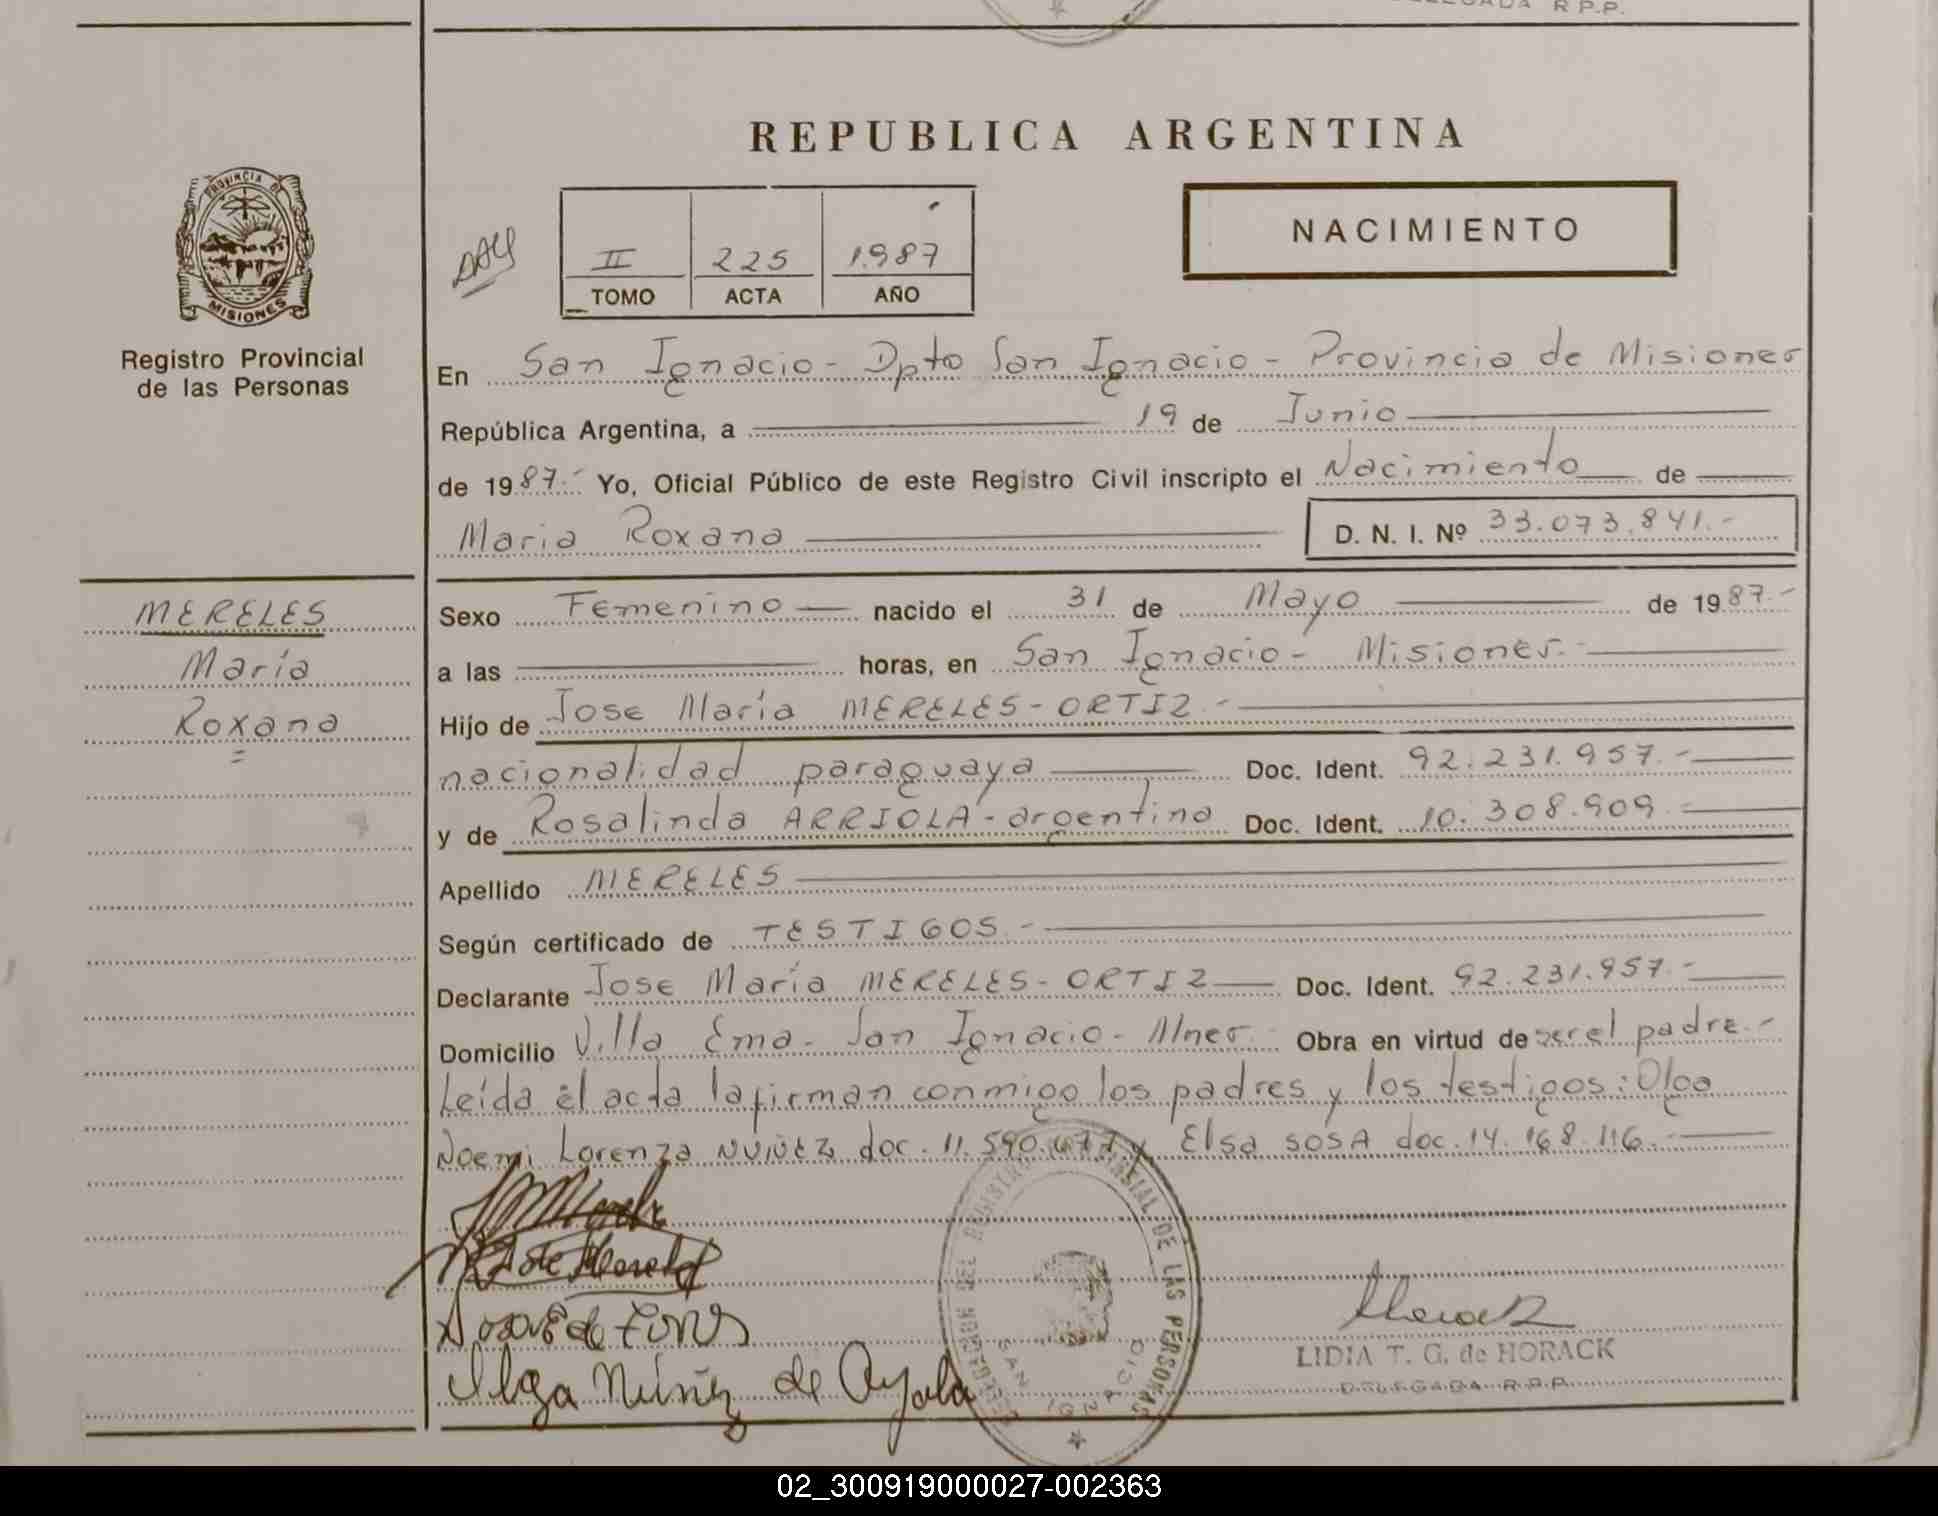 REPUBLICA ARGENTINA
PROVINCIA DE
MISIONES
Registro Provincial
de las Personas
II 225 1987
TOMO ACTA AÑO
NACIMIENTO
En San Ignacio - Dpto San Ignacio - Provincia de Misiones
República Argentina, a 19 de Junio
de 1987.- Yo, Oficial Público de este Registro Civil inscripto el Nacimiento de
Maria Roxana D. N. I. Nº 33.073.841.-
MERELES
María
Roxana
Sexo Femenino nacido el 31 de Mayo de 1987.-
a las horas, en San Ignacio - Misiones.-
Hijo de Jose María MERELES-ORTIZ.-
nacionalidad paraguaya Doc. Ident. 92.231.957.-
y de Rosalinda ARRIOLA-argentina Doc. Ident. 10.308.909.-
Apellido MERELES
Según certificado de TESTIGOS.-
Declarante Jose María MERELES-ORTIZ Doc. Ident. 92.231.957.-
Domicilio Villa Ema - San Ignacio - Mnes. Obra en virtud de ser el padre.-
Leída el acta la firman conmigo los padres y los testigos: Olga
Noemi Lorenza NUÑEZ doc. 11.590.677 y Elsa SOSA doc. 14.168.116.-
Olga Núñez de Ayala
DEL REGISTRO PROVINCIAL DE LAS PERSONAS
SAN IGNACIO
LIDIA T. G. de HORACK
DELEGADA R.P.P.
02_300919000027-002363